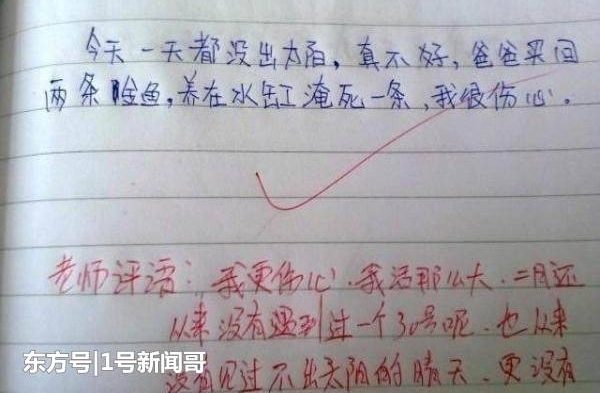 今天一天都没出太阳，真不好，爸爸买回
两条金鱼，养在水缸淹死一条，我很伤心。
老师评语：我更伤心。我活那么大，二月还
从来没有遇到过一个30号呢。也从来
没有见过不出太阳的晴天、更没有
东方号|1号新闻哥